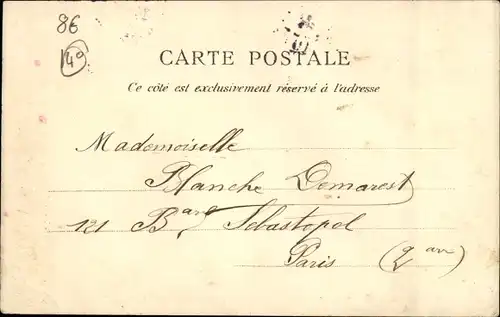 86
40
CARTE POSTALE
Ce côté est exclusivement réservé à l'adresse
Mademoiselle
Blanche Demarest
121 Bard Sébastopol
Paris (2 arr)